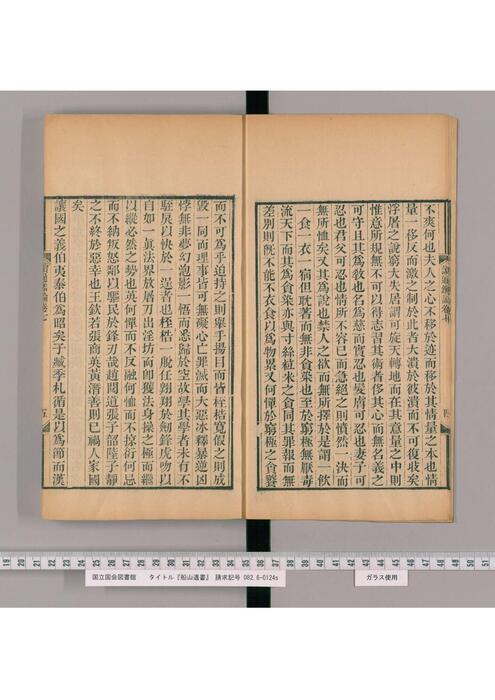 不爽何也夫人之心不移於迹而移於其情量之本也情
量一移反而激之制於此者大潰於彼潰而不可復收矣
浮屠之說窮大失居謂可旋天轉地而在其意量之中則
惟意所規無不可以得志習其術者侈其心而無名義之
可守且其為敎也名為慈而實忍也髮膚可忍也妻子可
忍也君父可忍也情所不容已而急絕之則憤然一決而
無所恤矣又其為說也禁人之欲而無所擇於是謂一飲
一食一衣一宿但耽著而無非食業也至於窮極無厭毒
流天下而其為貪業亦與寸絲粒米之貪同其罪報而無
差別則既不能不衣食以為物累又何憚於窮極之貪饕
而不可為乎迫持之則舉手揚目而皆桎梏寬假之則成
毀一同而理事皆可無礙心亡罪滅而大惡冰釋暴逆凶
悖無非夢幻泡影一悟而悉歸於空故學其學者未有不
駐戾以快於一逞者也桎梏一脫任翱翔於劔鋒虎吻以
自如一眞法界放屠刀出淫坊而即獲法身操之極而繼
以縱必然之勢也英何憚而不反何恤而不掠衍何忌
而不納叛怨鄰以驅民於鋒刃哉趙閱道張子韶陸子靜
之不終於惡幸也王欽若張商英黃潛善則已禍人家國
矣
讓國之義伯夷泰伯為昭矣子臧季札循是以為節而漢
讀通鑑論卷七
四
讀通鑑論卷七
五
19 20 21 22 23 24 25 26 27 28 29 30 31 32 33 34 35 36 37 38 39 40 41 42 43 44 45 46 47 48 49 50 51
国立国会図書館 タイトル『船山遺書』 請求記号 082.6-0124s
ガラス使用